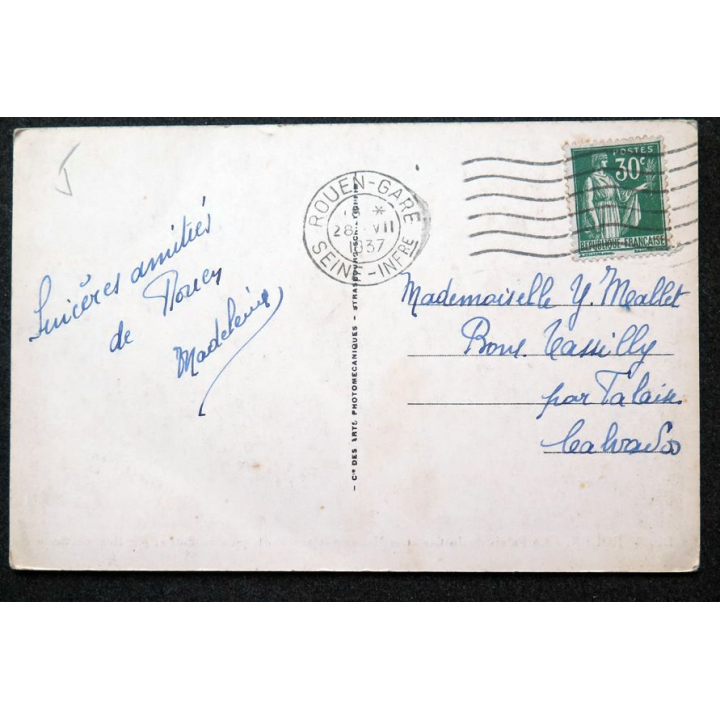 Sincères amitiés
de Rouen
Madeleine
ROUEN-GARE
*
28 VII
1937
SEINE-INFRE
POSTES
30c
REPUBLIQUE FRANÇAISE
Mademoiselle Y. Mallet
Bons Tassilly
par
Calvados
- Cie DES ARTS PHOTOMECANIQUES - STRASBOURG-SCHILTIGHEIM